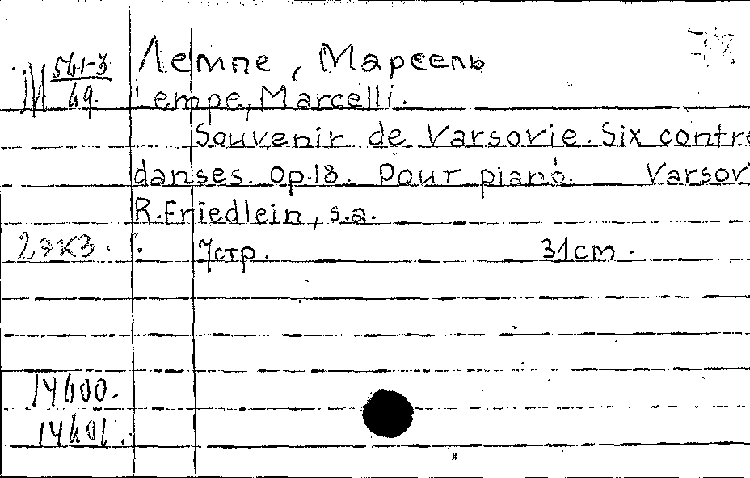 М 561-3
69.
Лемпе, Марсель
Lempe, Marcelli.
Souvenir de Varsovie. Six contre
danses. Op.18. Pour piano. Varsov
R.Friedlein, s.a.
2экз. 7стр. 31cm.
14600.
14601.